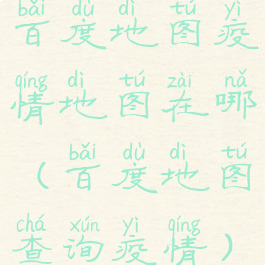 bǎi dù dì tú yì
百度地图疫
qíng dì tú zài nǎ
情地图在哪
bǎi dù dì tú
（百度地图
chá xún yì qíng
查询疫情）